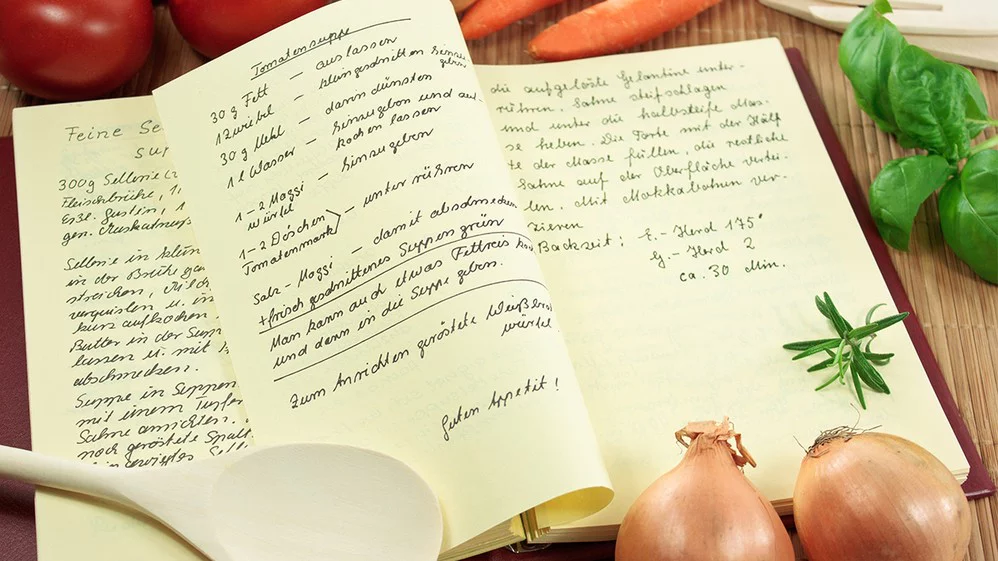 Feine Se
Sup
300g Sellerie
Fleischbrühe, 1
Essl. Gustin, 1
gen. Muskatnuß
Sellerie in klein
in der Brühe ga
streichen, Milch
verquirlen u. in
kurz aufkochen
Butter in der Supp
lassen u. mit
abschmecken.
Suppe in Suppen
mit einem Tupfer
Sahne anrichten.
noch geröstete
Tomatensuppe
30 g Fett — auslassen
1 Zwiebel — kleingeschnitten hinzu
geben
30 g Mehl — darin dünsten
1 l Wasser — hinzugeben und auf-
kochen lassen
1-2 Maggi — hinzugeben
würfel
1-2 Döschen — unterrühren
Tomatenmark
Salz - Maggi — damit abschmecken
+ frisch geschnittenes Suppengrün
Man kann auch etwas Fettreis
und dann in die Suppe geben.
Zum Anrichten geröstete Weißbrot
würfel
Guten Appetit!
die aufgelöste Gelantine unter-
rühren. Sahne steifschlagen
und unter die halbsteife Mas-
se heben. Die Torte mit der Hälf
te der Masse füllen, die restliche
Sahne auf der Oberfläche vertei-
len. Mit Mokkabohnen ver-
zieren
Backzeit: E.-Herd 175°
G.-Herd 2
ca. 30 Min.